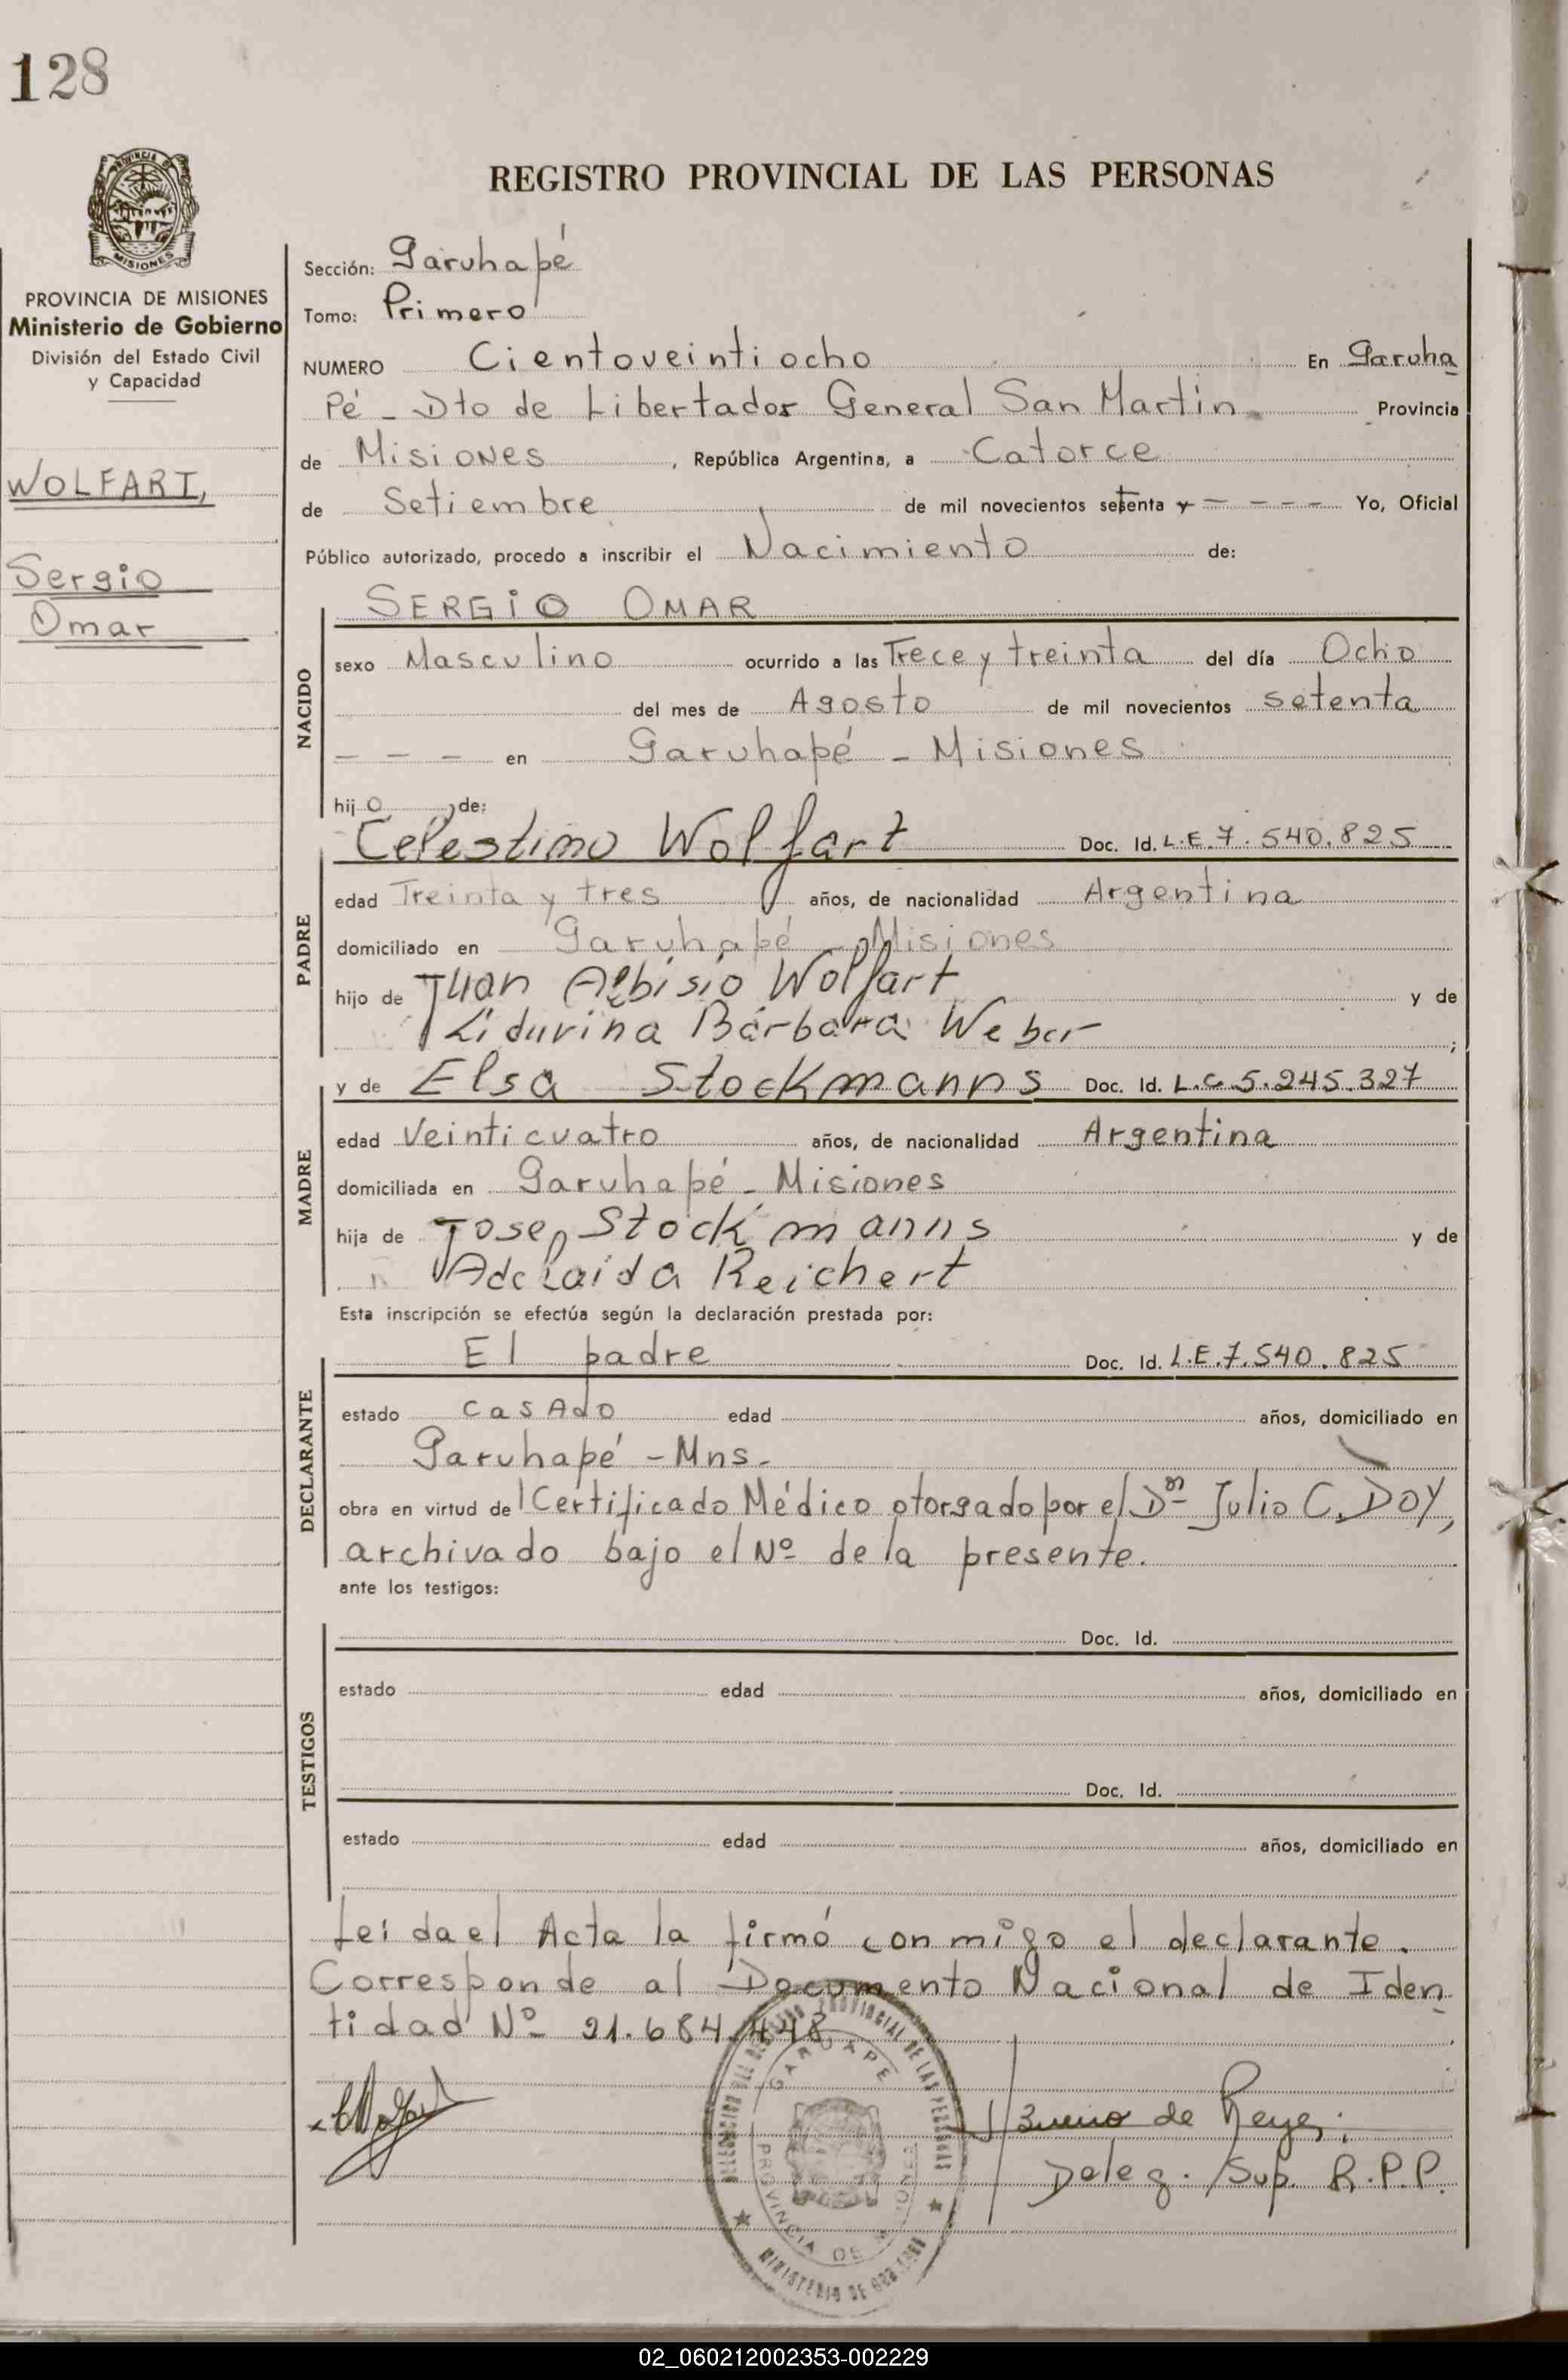 128
REGISTRO PROVINCIAL DE LAS PERSONAS
MISIONES
PROVINCIA DE MISIONES
Ministerio de Gobierno
División del Estado Civil
y Capacidad
WOLFART,
Sergio
Omar
Sección: Garuhapé
Tomo: Primero
NUMERO Cientoveintiocho En Garuha
pé - Dto de Libertador General San Martín Provincia
de Misiones, República Argentina, a Catorce
de Setiembre de mil novecientos setenta y - - - - Yo, Oficial
Público autorizado, procedo a inscribir el Nacimiento de:
NACIDO
SERGIO OMAR
sexo Masculino ocurrido a las Trece y treinta del día Ocho
del mes de Agosto de mil novecientos setenta
- - - en Garuhapé - Misiones
hijo de:
PADRE
Celestino Wolfart Doc. Id. L.E.7.540.825
edad Treinta y tres años, de nacionalidad Argentina
domiciliado en Garuhapé - Misiones
hijo de Juan Albisio Wolfart y de
Lidurina Bárbara Weber;
MADRE
y de Elsa Stockmanns Doc. Id. L.C.5.245.327
edad Veinticuatro años, de nacionalidad Argentina
domiciliada en Garuhapé - Misiones
hija de Josep Stockmanns y de
Adelaida Reichert
Esta inscripción se efectúa según la declaración prestada por:
DECLARANTE
El padre Doc. Id. L.E.7.540.825
estado casado edad años, domiciliado en
Garuhapé - Mns.
obra en virtud del Certificado Médico otorgado por el Dn Julio C. Doy,
archivado bajo el Nº de la presente.
ante los testigos:
TESTIGOS
Doc. Id.
estado edad años, domiciliado en
Doc. Id.
estado edad años, domiciliado en
Leida el Acta la firmó conmigo el declarante.
Corresponde al Documento Nacional de Iden
tidad Nº 21.684.448
DELEGACION DEL REGISTRO PROVINCIAL DE LAS PERSONAS
GARUAPE
PROVINCIA DE MISIONES
MINISTERIO DE GOBIERNO
Bueno de Reyes
Deleg. Sup. R.P.P.
02_060212002353-002229